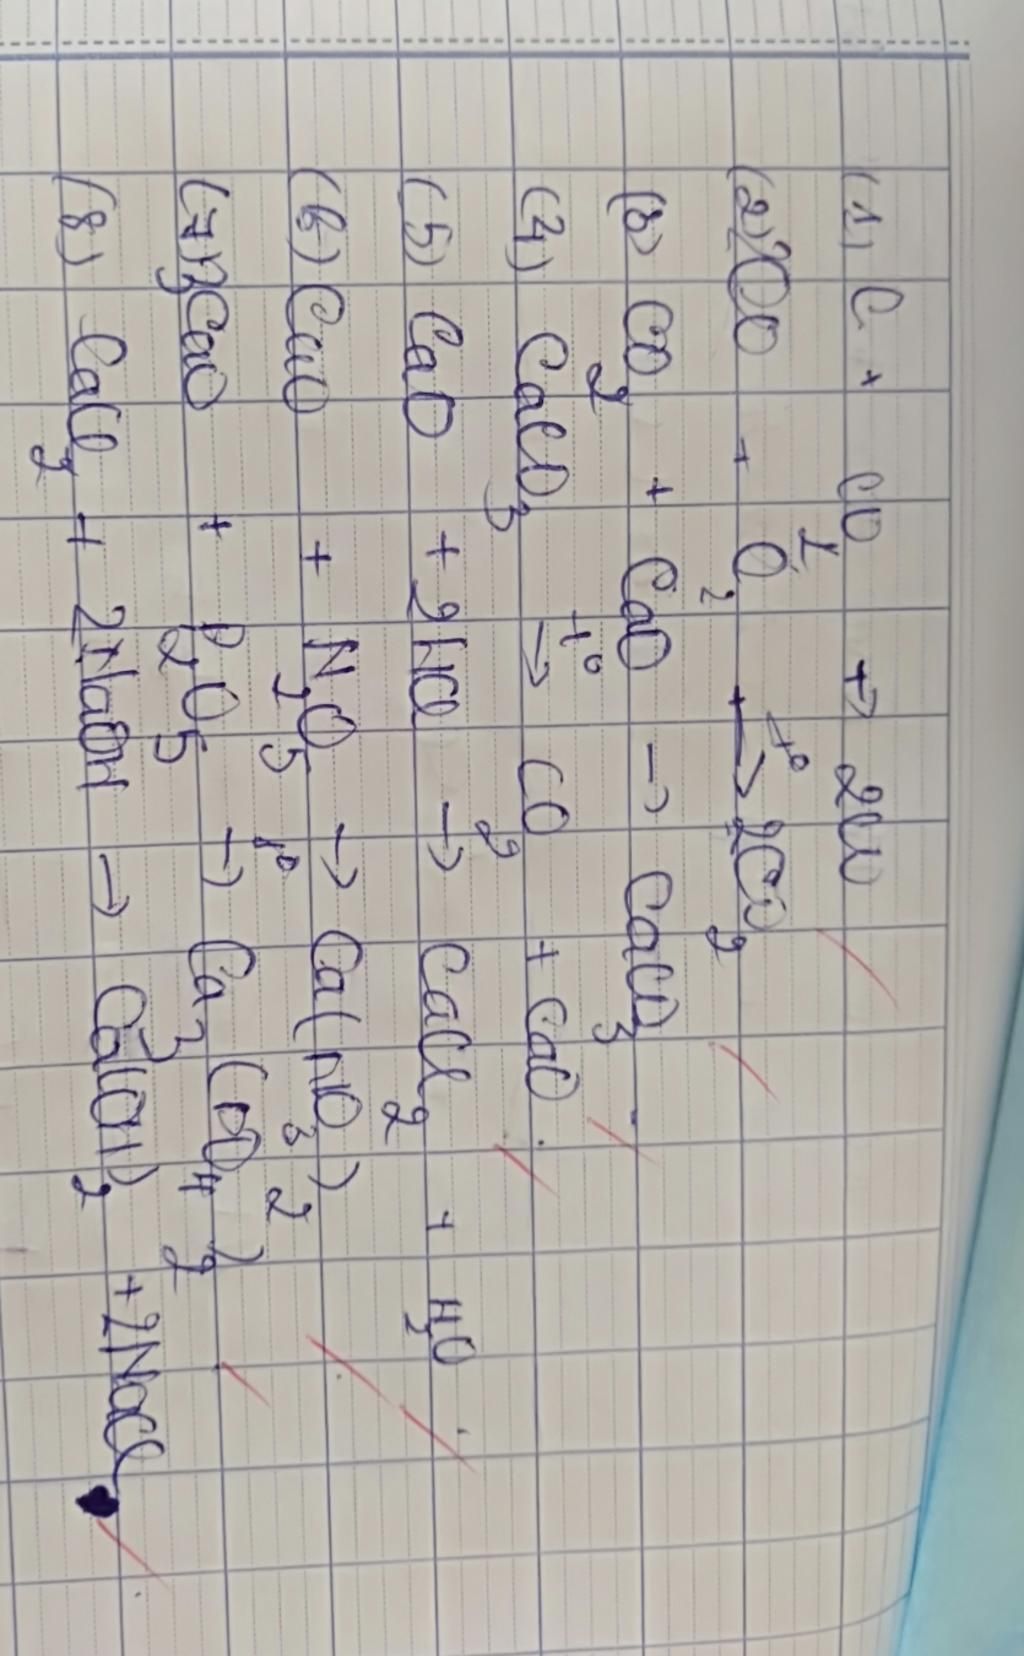 (1) C + CO2 → 2CO
(2) 2CO + O2 —t°→ 2CO2
(3) CO2 + CaO → CaCO3
(4) CaCO3 —t°→ CO2 + CaO
(5) CaO + 2HCl → CaCl2 + H2O
(6) CaO + N2O5 → Ca(NO3)2
(7) 3CaO + P2O5 —t°→ Ca3(PO4)2
(8) CaCl2 + 2NaOH → Ca(OH)2 + 2NaCl